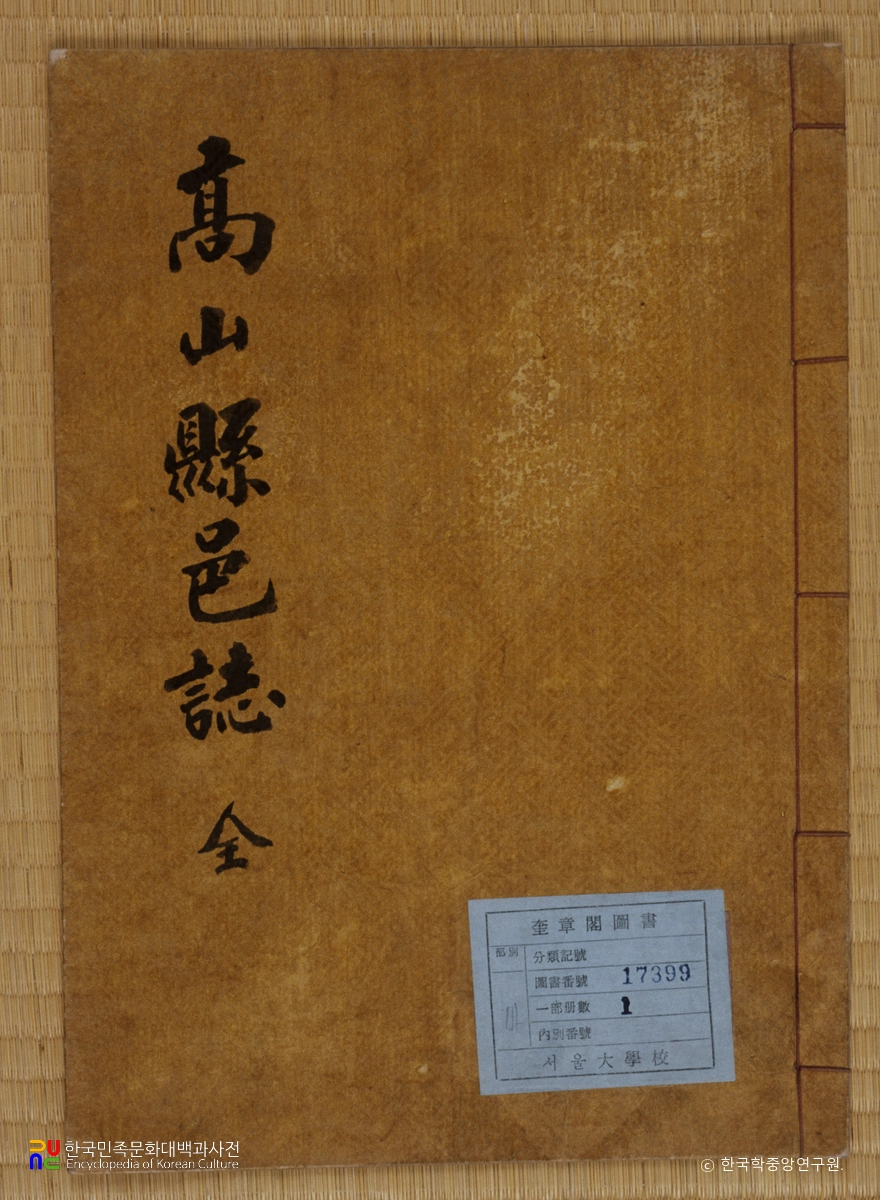 高山縣邑誌 全
奎章閣圖書
部別
分類記號
圖書番號 17399
一部册數 1
內別番號
서울大學校
한국민족문화대백과사전
Encyclopedia of Korean Culture
© 한국학중앙연구원.